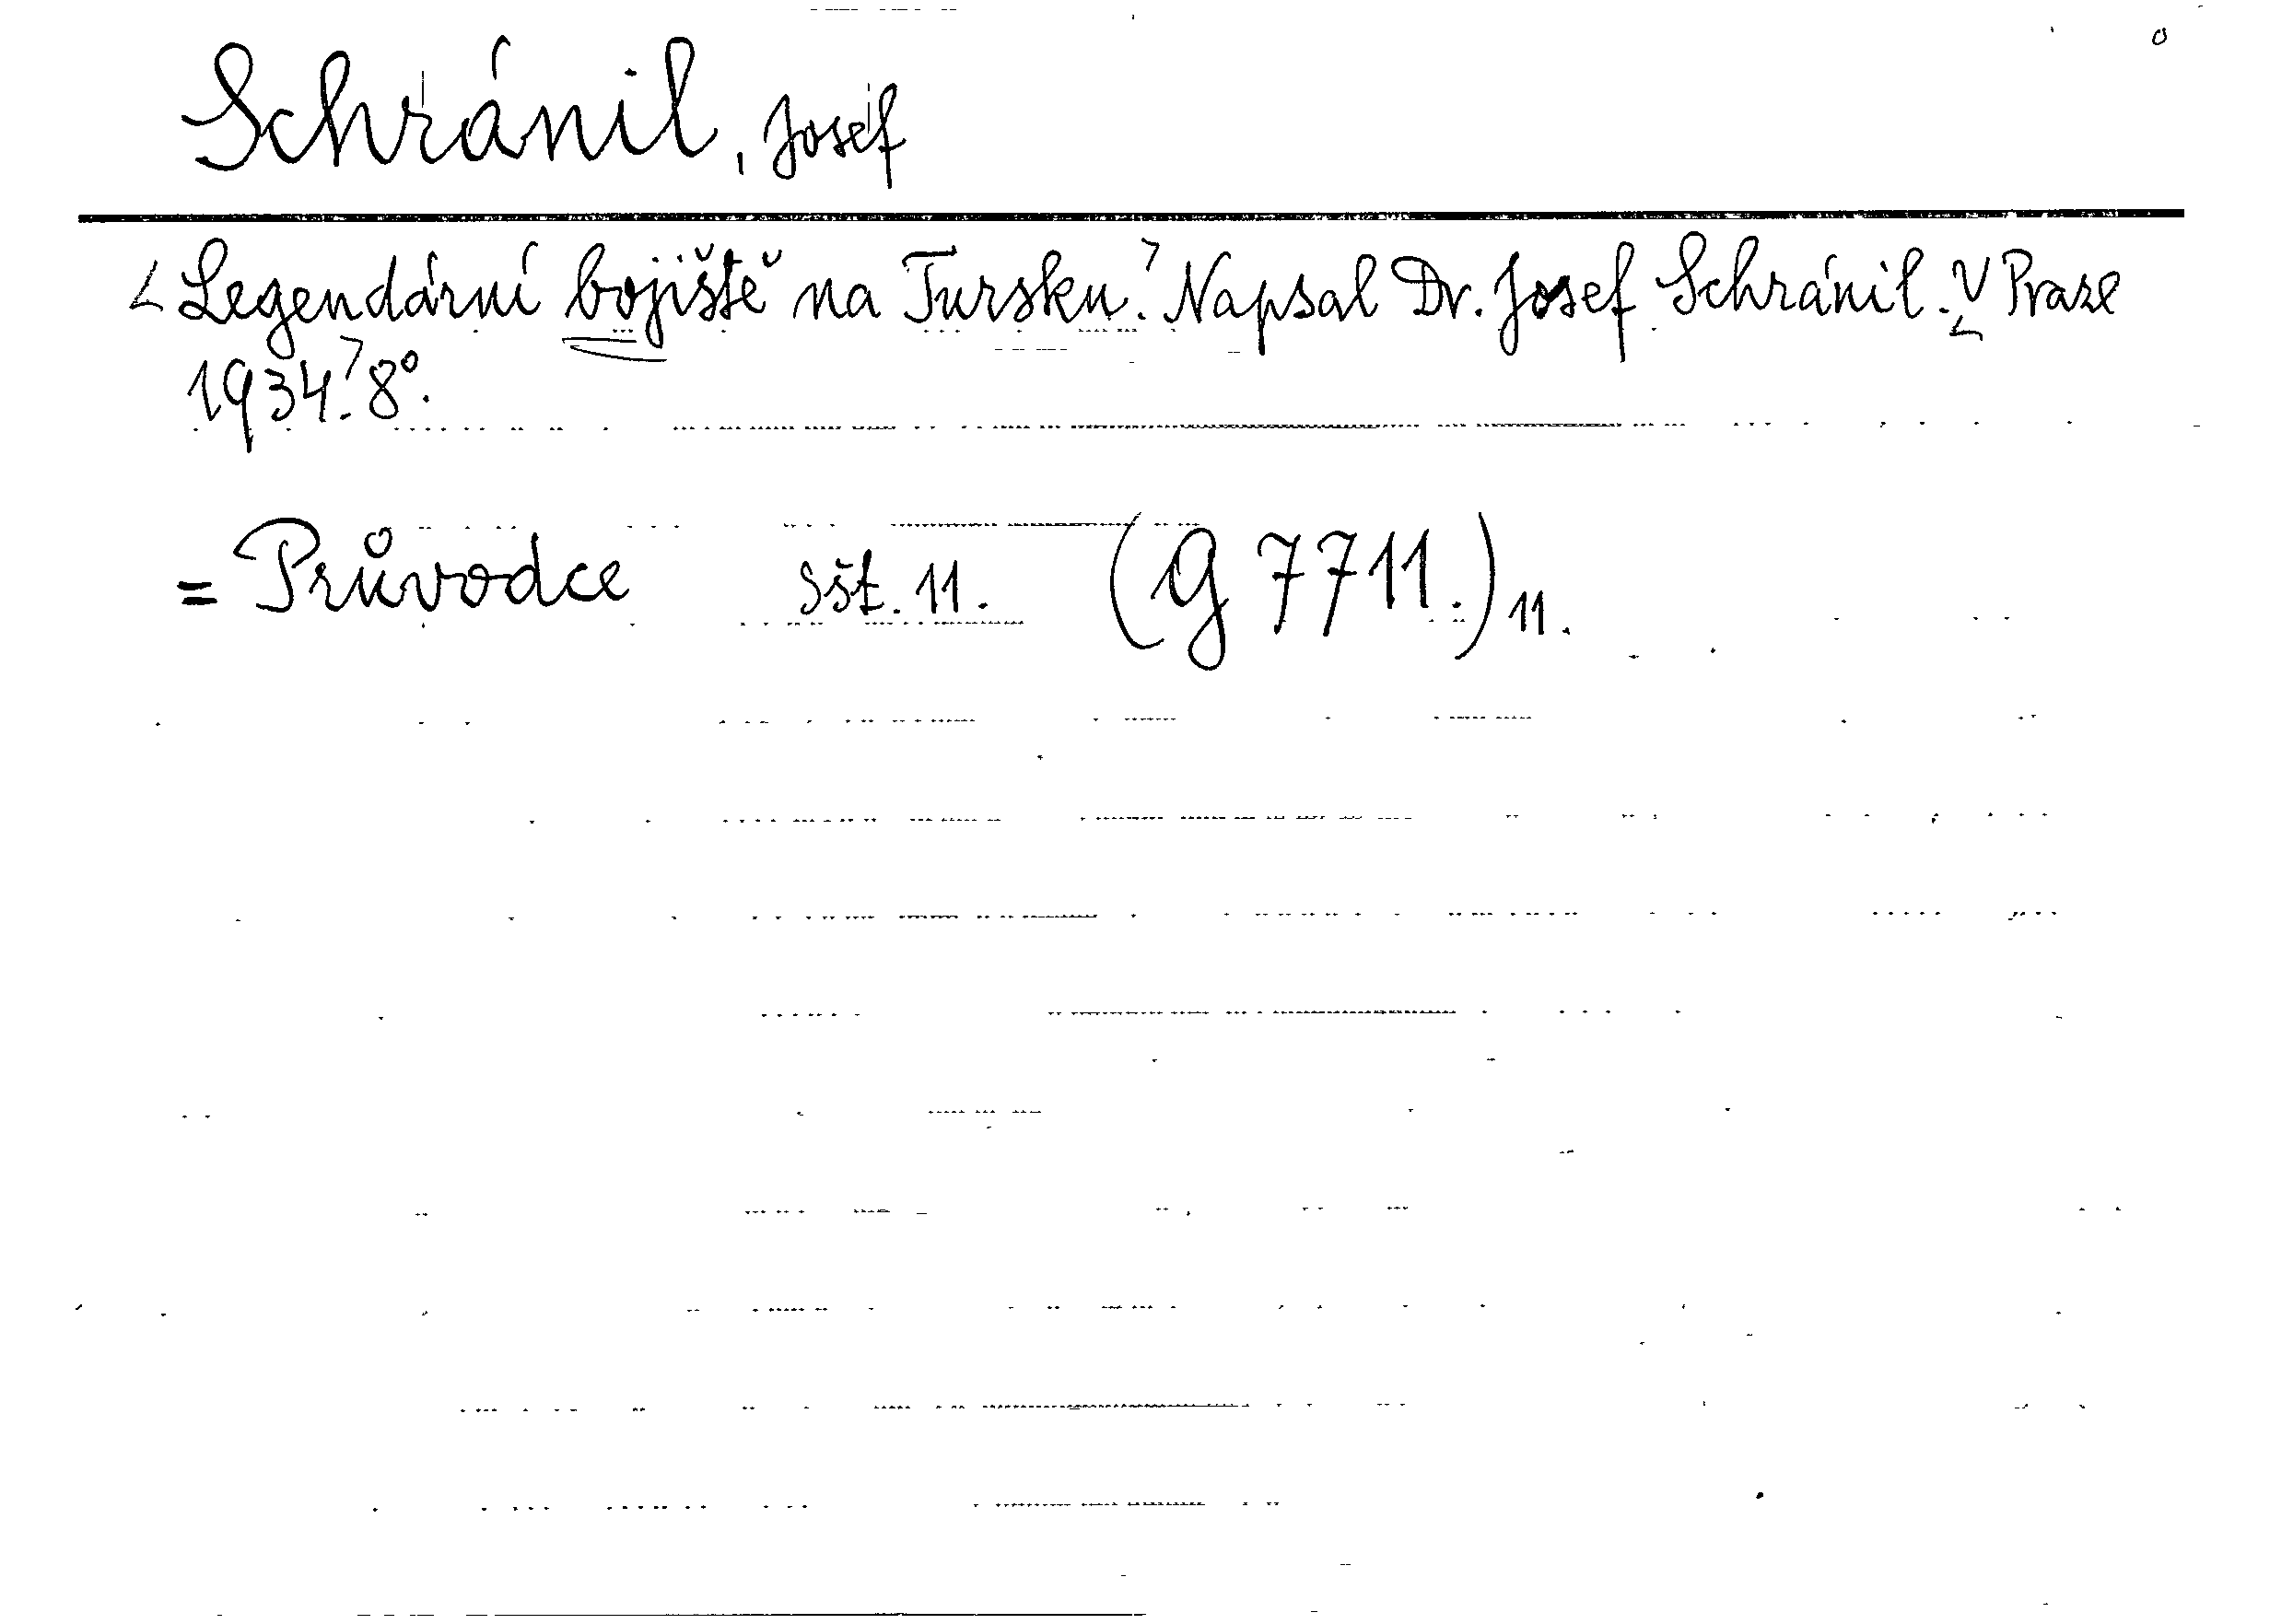 Schránil, Josef
<Legendární bojiště na Tursku.> Napsal Dr. Josef Schránil. <V Praze
1934.> 8°.
= Průvodce sšt. 11. (G 7711.) 11.